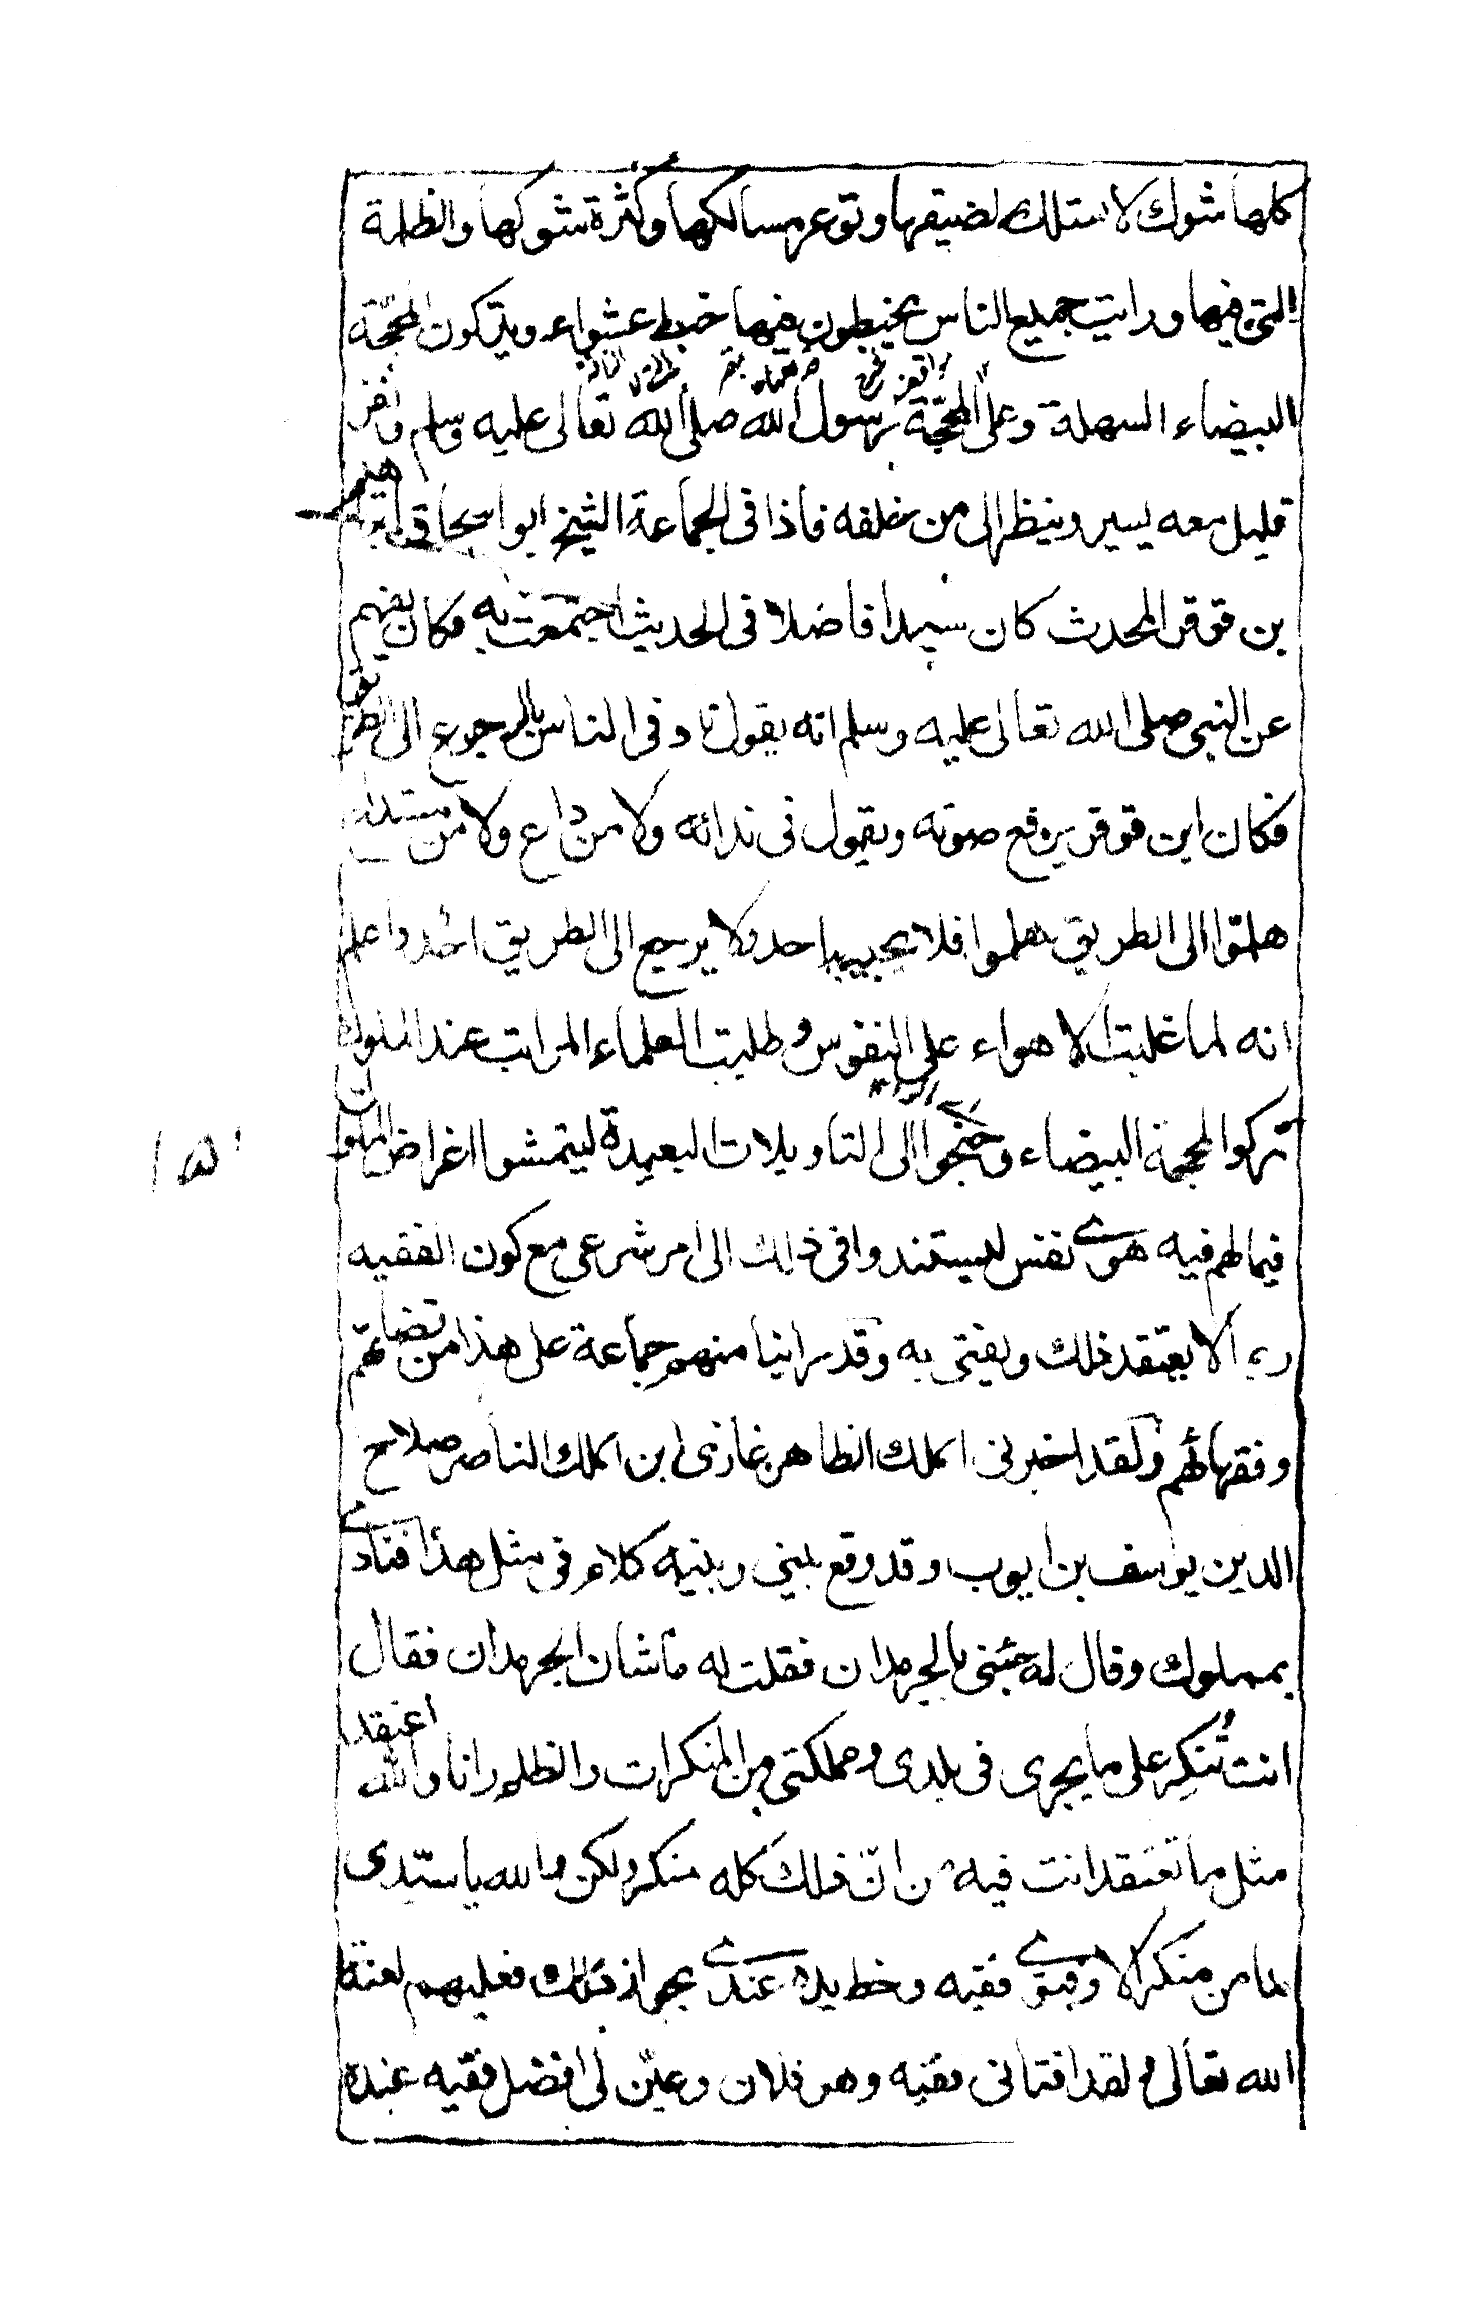 كلها شوك لا تسلك لضيقها وتوعر مسالكها وكثرة شوكها والظلمة
التي فيها ورايت جميع الناس يخبطون فيها خبط عشواء ويتركون المحجّة
البيضاء السهلة وعلى المحجّة رسول الله صلى الله تعالى عليه وسلم ونفر
قليل معه يسير وينظر الى من خلفه فاذا في الجماعة الشيخ ابو اسحاق ابرهيم
بن قرقر المحدث كان سيدا فاضلا في الحديث اجتمعت به فكان يفهم
عن النبي صلى الله تعالى عليه وسلم انه يقول ناد في الناس بالرجوع الى الطريق
فكان ابن قرقر يرفع صوته ويقول في ندائه ولا من داع ولا من مستداع
هلمّوا الى الطريق هلموا فلا يجيبه احد ولا يرجع الى الطريق احد واعلم
انه لما غلبت الاهواء على النفوس وطلبت العلماء المراتب عند الملوك
تركوا المحجة البيضاء وجنحوا الى التاويلات البعيدة ليتمشوا اغراض الملوك
فيما لهم فيه هوى نفس ليستندوا في ذلك الى امر شرعي مع كون الفقيه
ربما لا يعتقد ذلك ويفتي به وقد راينا منهم جماعة على هذا من قضاتهم
وفقهائهم ولقد اخبرني الملك الظاهر غازي ابن الملك الناصر صلاح
الدين يوسف بن ايوب وقد وقع بيني وبينه كلام في مثل هذا فنادى
بمملوك وقال له جئني بالحرمدان فقلت له ما شان الحرمدان فقال
انت تُنكِر على ما يجري في بلدي ومملكتي من المنكرات والظلم وانا والله اعتقد
مثل ما تعتقد انت فيه من انّ ذلك كله منكر ولكن والله يا سيّدي
ما من منكر الا وفتوى فقيه وخط يده عندي بجواز ذلك فعليهم لعنة
الله تعالى ولقد افتاني فقيه وهو فلان وعيّن لي افضل فقيه عنده